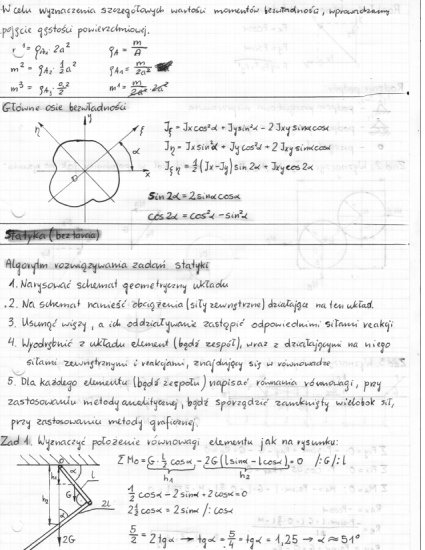 W celu wyznaczenia szczegółowych wartości momentów bezwładności, wprowadzamy
pojęcie gęstości powierzchniowej.
m¹ = ρA₁ · 2a²   ρA = m/A
m² = ρA₂ · ½a²   ρA₁ = m/2a²
m³ = ρA₃ · a²/2   m¹ = m/2a² · 2a²
Główne osie bezwładności
η y ξ
α
x
0
Jξ = Jx cos²α + Jy sin²α - 2Jxy sinα cosα
Jη = Jx sin²α + Jy cos²α + 2Jxy sinα cosα
Jξη = ½(Jx - Jy) sin 2α + Jxy cos 2α
sin 2α = 2 sinα cosα
cos 2α = cos²α - sin²α
Statyka (bez tarcia)
Algorytm rozwiązywania zadań statyki
1. Narysować schemat geometryczny układu
2. Na schemat nanieść obciążenia (siły zewnętrzne) działające na ten układ.
3. Usunąć więzy, a ich oddziaływanie zastąpić odpowiednimi siłami reakcji
4. Wyodrębnić z układu element (bądź zespół), wraz z działającymi na niego
siłami zewnętrznymi i reakcjami, znajdujący się w równowadze
5. Dla każdego elementu (bądź zespołu) napisać równania równowagi, przy
zastosowaniu metody analitycznej, bądź sporządzić zamknięty wielobok sił,
przy zastosowaniu metody graficznej.
Zad 1. Wyznaczyć położenie równowagi elementu jak na rysunku:
ΣMo = G · ½ cosα - 2G (l sinα - l cosα) = 0 /:G /:l
h₁ h₂
½ cosα - 2 sinα + 2 cosα = 0
2½ cosα = 2 sinα /: cosα
5/2 = 2 tgα → tgα = 5/4 = tgα = 1,25 → α ≈ 51°
0 α
h₁ l
G
h₂ α 2l
2G